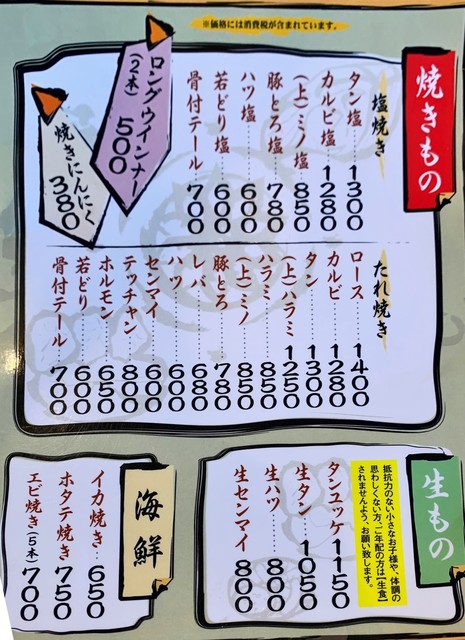 ※価格には消費税が含まれています。
焼きもの
塩焼き
タン塩…1300
カルビ塩…1280
(上)ミノ塩…850
豚とろ塩…780
ハツ塩…600
若どり塩…600
骨付テール…700
ロングウインナー
(2本) 500
焼きにんにく
380
たれ焼き
ロース…1400
カルビ…1280
タン…1300
(上)ハラミ…1250
ハラミ…850
(上)ミノ…850
豚とろ…780
レバ…680
ハツ…600
センマイ…600
テッチャン…800
ホルモン…650
若どり…600
骨付テール…700
生もの
抵抗力のない小さなお子様や、体調の
思わしくない方、ご年配の方は【生食】
されませんよう、お願い致します。
タンユッケ…1150
生タン…1050
生ハツ…800
生センマイ…800
海鮮
イカ焼き…650
ホタテ焼き…750
エビ焼き(5本)…700